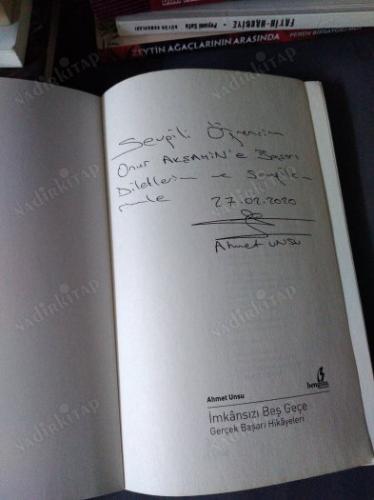 FATİH-HARBİYE
Peyami Safa
ZEYTİN AĞAÇLARININ ARASINDA
NADİRKİTAP
Sevgili Öğrencim
Onur AKŞAHİN'e Başarı
Dileklerim ve Sevgiler
imle 27.02.2020
Ahmet UNSU
Ahmet Unsu
İmkânsızı Beş Geçe
Gerçek Başarı Hikâyeleri